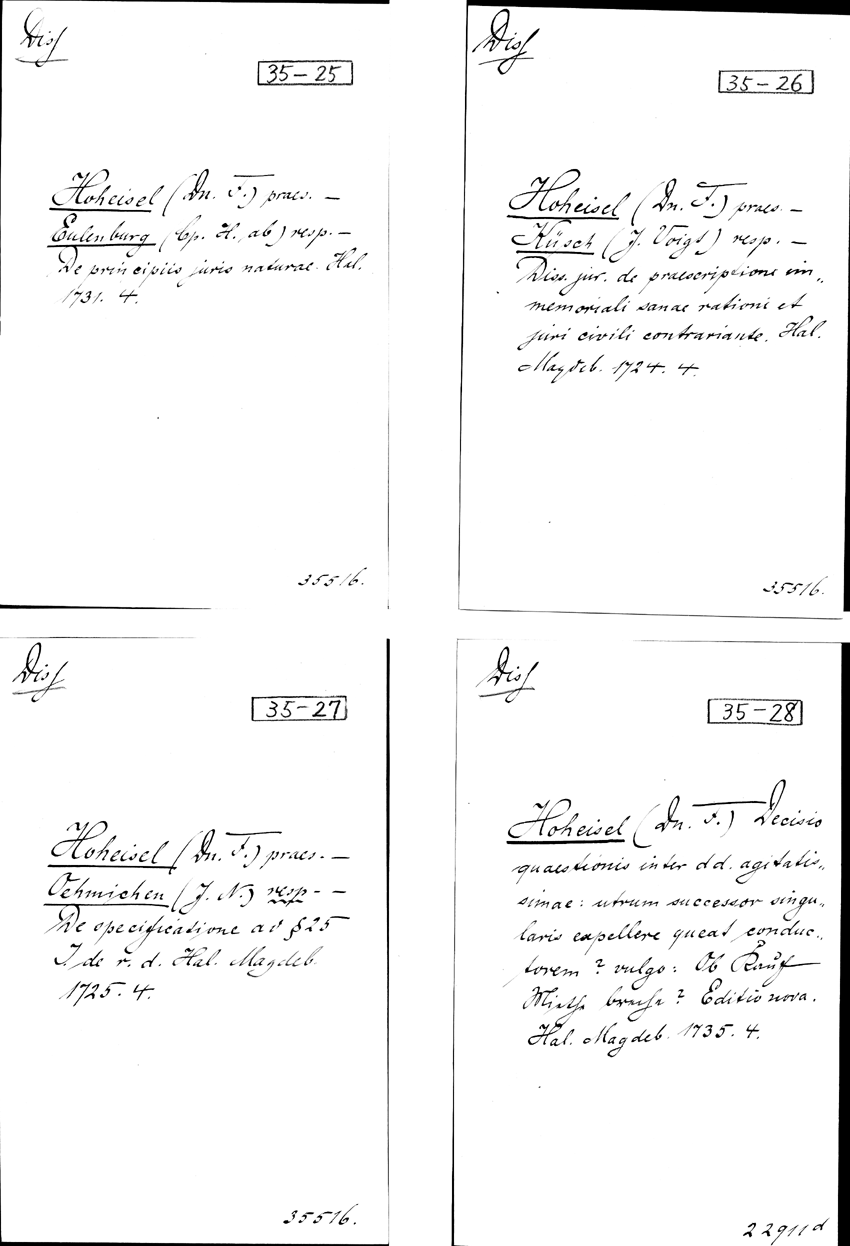 Diss
35-25
Hoheisel (Dn. F.) praes. —
Eulenburg (Cp. H. ab) resp. —
De principiis juris naturae. Hal.
1731. 4.
35516.
Diss
35-26
Hoheisel (Dn. F.) praes. —
Küsch (J. Voigt) resp. —
Diss. jur. de praescriptione im„
memoriali sanae rationi et
juri civili contrariante. Hal.
Magdeb. 1724. 4.
35516.
Diss
35-27
Hoheisel (Dn. F.) praes. —
Oehmichen (J. N.) resp. —
De specificatione ad § 25
I de r. d. Hal. Magdeb.
1725. 4.
35516.
Diss
35-28
Hoheisel (Dn. F.) Decisio
quaestionis inter dd. agitatis„
simae: utrum successor singu„
laris expellere queat conduc„
torem? vulgo: Ob Kauf
Miethe breche? Editio nova.
Hal. Magdeb. 1735. 4.
22911d